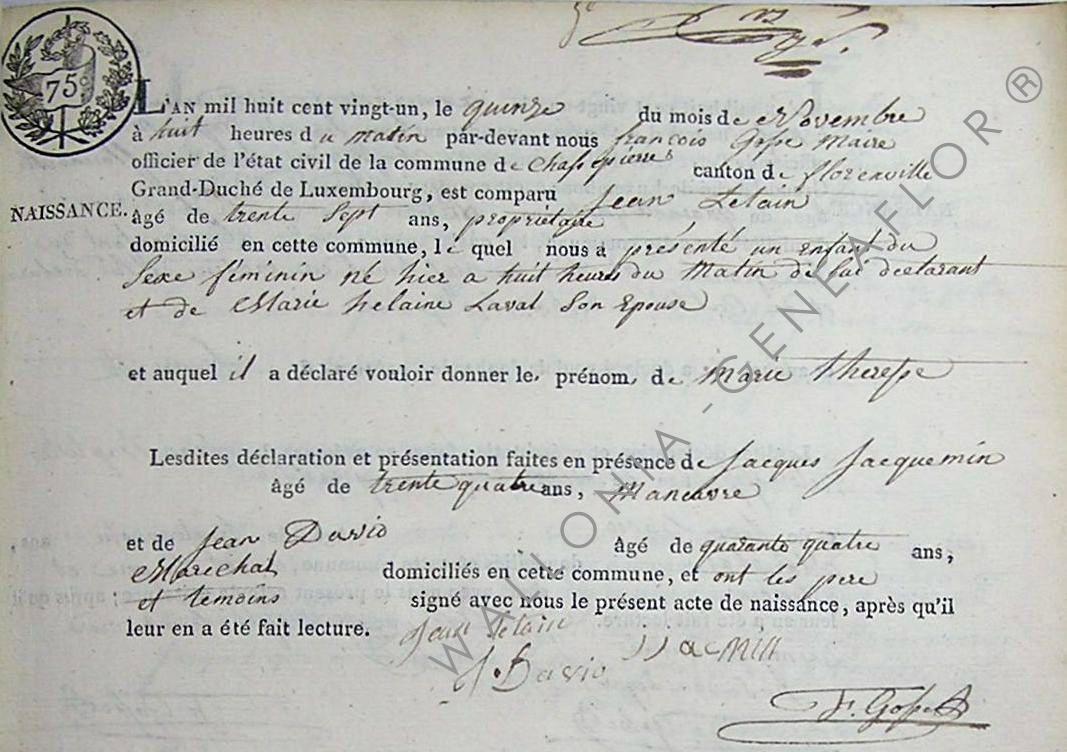 75c
L'AN mil huit cent vingt-un, le quinze du mois de Novembre
à huit heures du matin par-devant nous françois Gosse Maire
officier de l'état civil de la commune de Chassepierre canton de florenville
Grand-Duché de Luxembourg, est comparu Jean Letain
NAISSANCE.
âgé de trente sept ans, propriétaire
domicilié en cette commune, lequel nous a présenté un enfant du
Sexe féminin né hier a huit heures du Matin de lui declarant
et de Marie helaine Laval Son Epouse
et auquel il a déclaré vouloir donner le prénom de Marie theresse
Lesdites déclaration et présentation faites en présence de Jacques Jacquemin
âgé de trente quatre ans, Manœuvre
et de Jean Davio âgé de quarante quatre ans,
Marechal domiciliés en cette commune, et ont les pere
et temoins signé avec nous le présent acte de naissance, après qu'il
leur en a été fait lecture. Jean Letain
J. Davio
F. Gosse
WALLONIA - GENEAFLOR ®